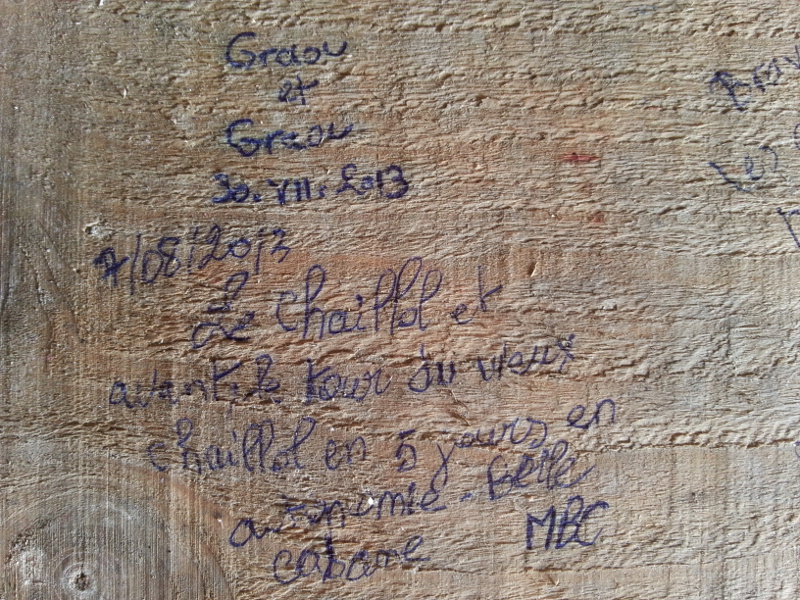 Graou
et
Graou
30.VII.2013
7/08/2013
Le Chaillol et
avant le tour du vieux
chaillol en 5 jours en
autonomie - Belle
cabane MBC